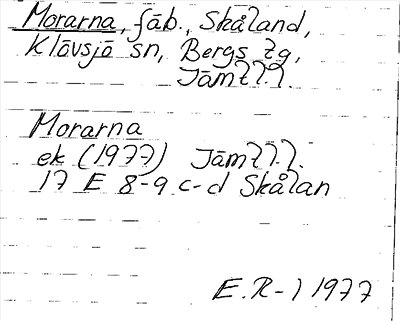 Morarna, fäb., Skåland,
Klövsjö sn, Bergs tg,
Jämtl.
Morarna
ek (1977) Jämtl.
17 E 8-9 c-d Skålan
E.R-) 1977